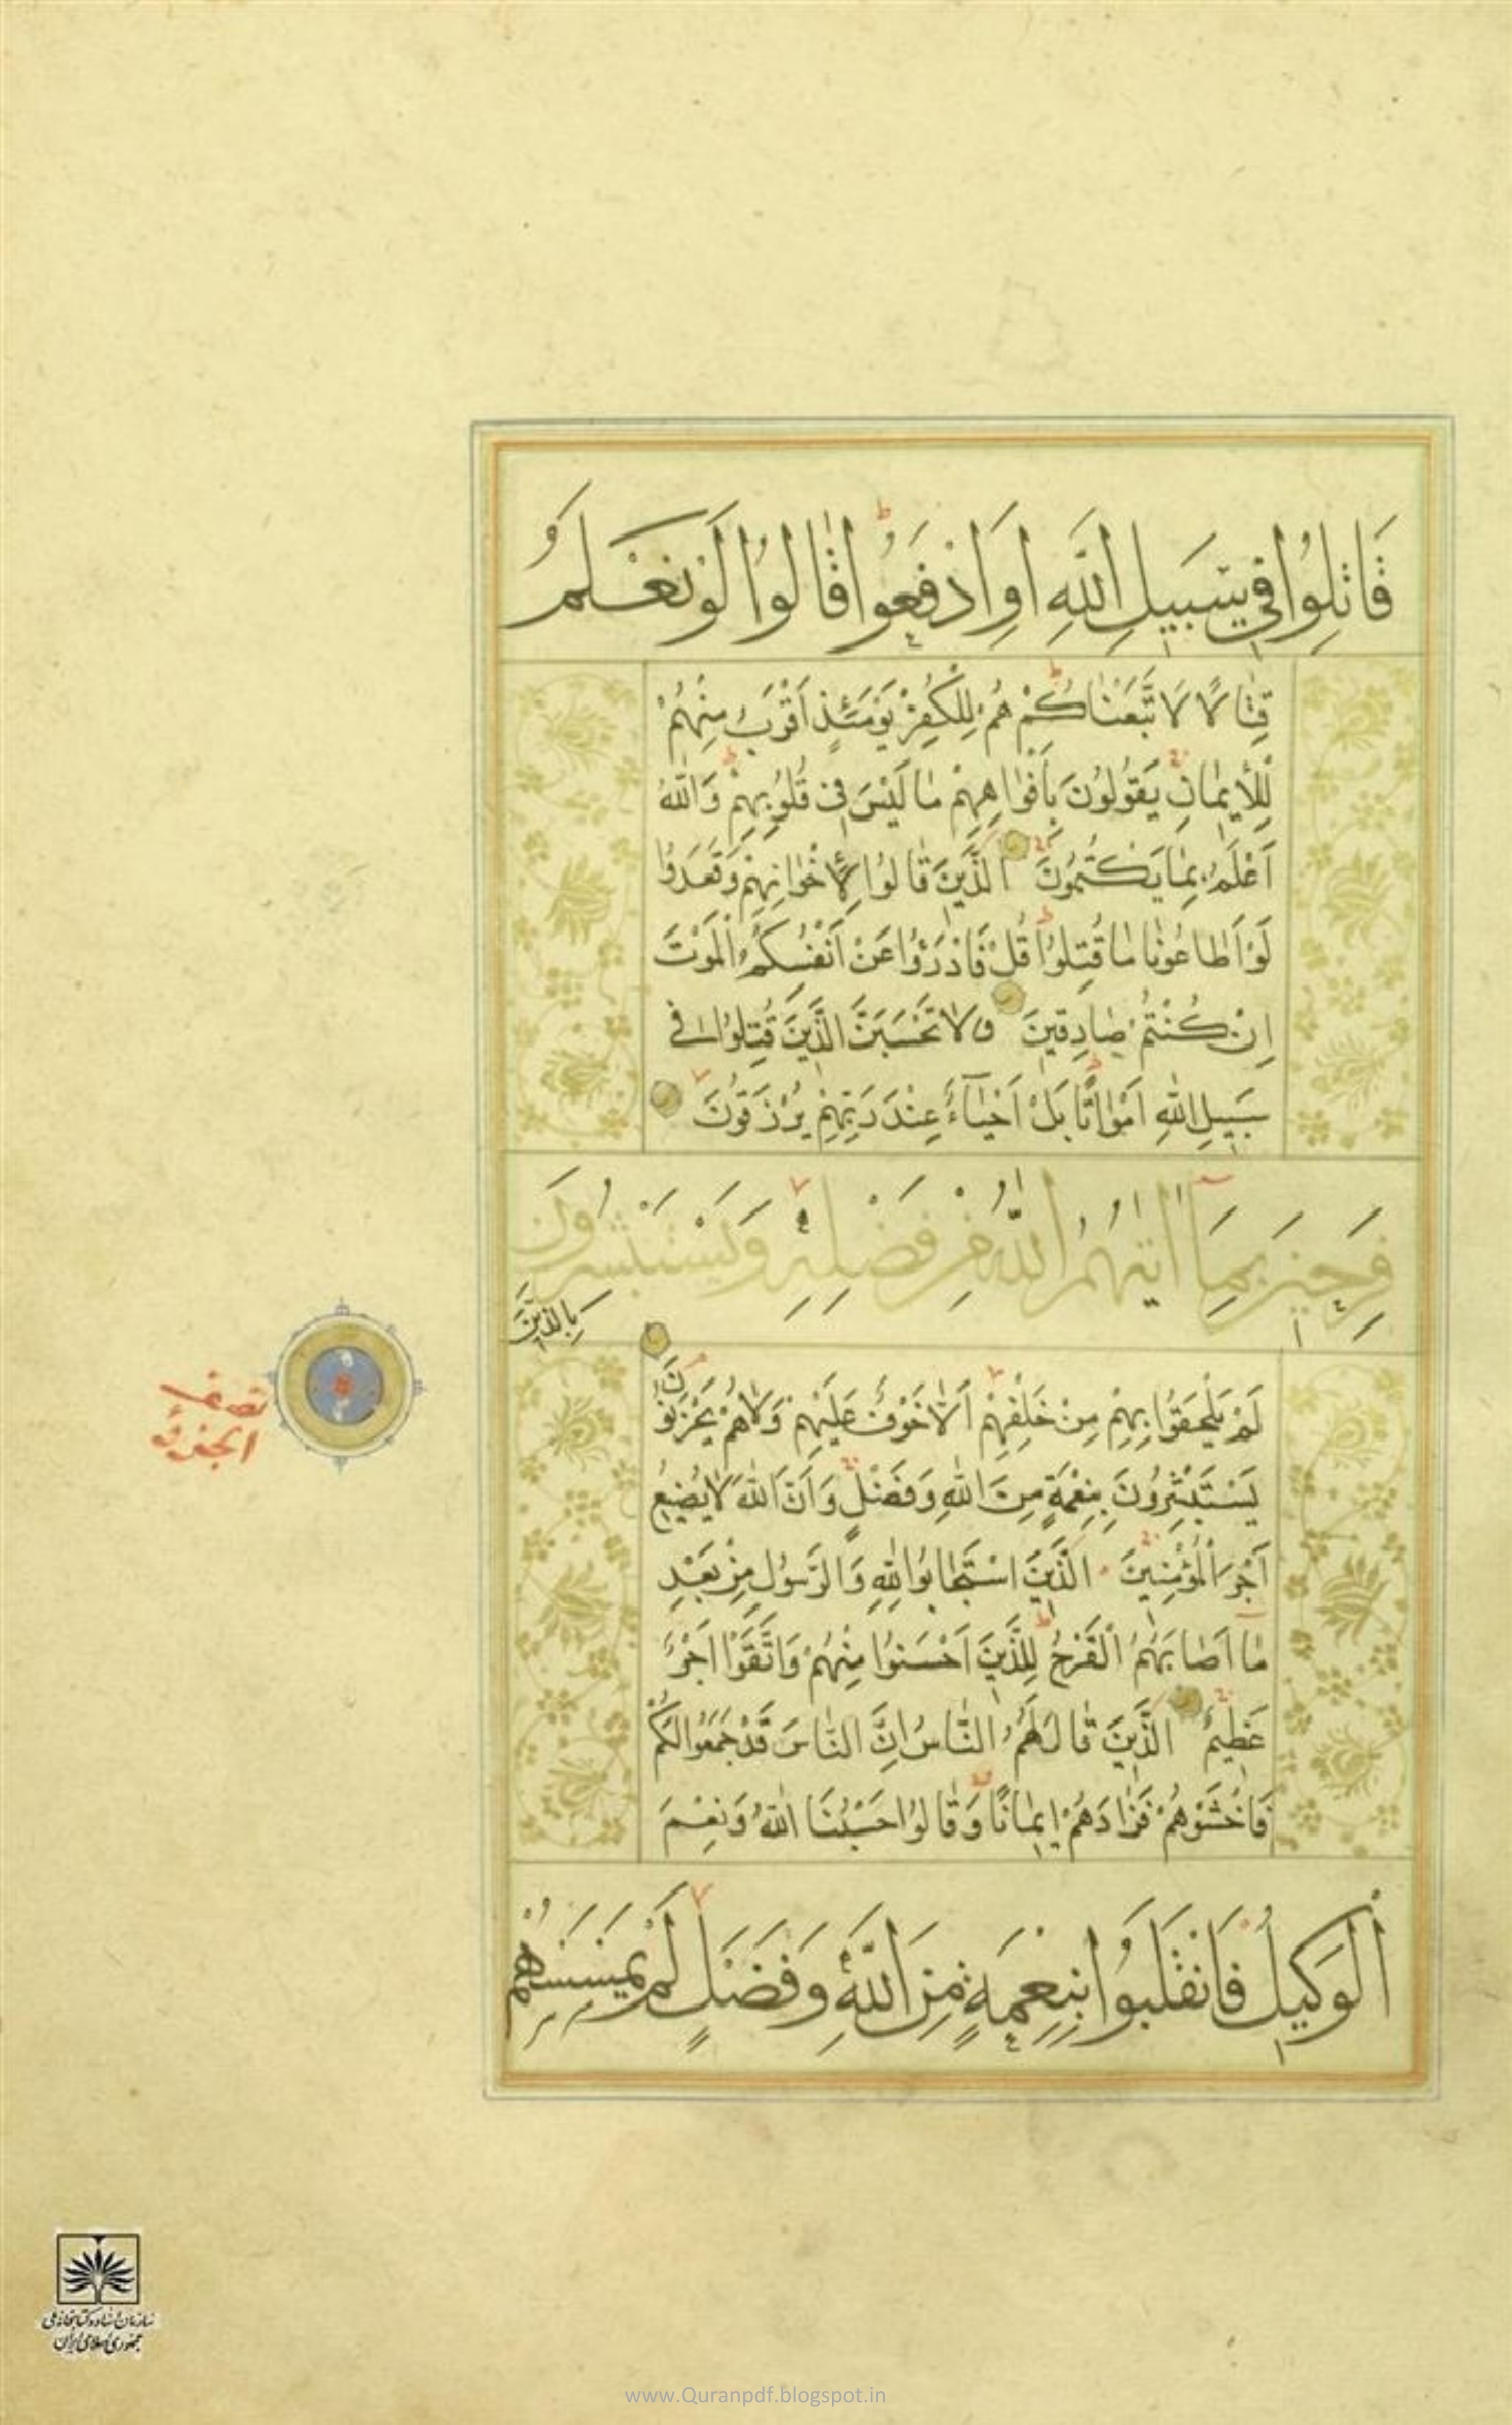 قَاتِلُوا فِي سَبِيلِ اللَّهِ أَوِ ادْفَعُوا قَالُوا لَوْ نَعْلَمُ
قِتَالًا لَاتَّبَعْنَاكُمْ هُمْ لِلْكُفْرِ يَوْمَئِذٍ أَقْرَبُ مِنْهُمْ
لِلْإِيمَانِ يَقُولُونَ بِأَفْوَاهِهِمْ مَا لَيْسَ فِي قُلُوبِهِمْ وَاللَّهُ
أَعْلَمُ بِمَا يَكْتُمُونَ الَّذِينَ قَالُوا لِإِخْوَانِهِمْ وَقَعَدُوا
لَوْ أَطَاعُونَا مَا قُتِلُوا قُلْ فَادْرَؤُا عَنْ أَنْفُسِكُمُ الْمَوْتَ
إِنْ كُنْتُمْ صَادِقِينَ وَلَا تَحْسَبَنَّ الَّذِينَ قُتِلُوا فِي
سَبِيلِ اللَّهِ أَمْوَاتًا بَلْ أَحْيَاءٌ عِنْدَ رَبِّهِمْ يُرْزَقُونَ
فَرِحِينَ بِمَا آتَيهُمُ اللَّهُ مِنْ فَضْلِهِ وَيَسْتَبْشِرُونَ
بِالَّذِينَ
لَمْ يَلْحَقُوا بِهِمْ مِنْ خَلْفِهِمْ أَلَّا خَوْفٌ عَلَيْهِمْ وَلَا هُمْ يَحْزَنُونَ
يَسْتَبْشِرُونَ بِنِعْمَةٍ مِنَ اللَّهِ وَفَضْلٍ وَأَنَّ اللَّهَ لَا يُضِيعُ
أَجْرَ الْمُؤْمِنِينَ الَّذِينَ اسْتَجَابُوا لِلَّهِ وَالرَّسُولِ مِنْ بَعْدِ
مَا أَصَابَهُمُ الْقَرْحُ لِلَّذِينَ أَحْسَنُوا مِنْهُمْ وَاتَّقَوْا أَجْرٌ
عَظِيمٌ الَّذِينَ قَالَ لَهُمُ النَّاسُ إِنَّ النَّاسَ قَدْ جَمَعُوا لَكُمْ
فَاخْشَوْهُمْ فَزَادَهُمْ إِيمَانًا وَقَالُوا حَسْبُنَا اللَّهُ وَنِعْمَ
الْوَكِيلُ فَانْقَلَبُوا بِنِعْمَةٍ مِنَ اللَّهِ وَفَضْلٍ لَمْ يَمْسَسْهُمْ
نصف
الجزء
سازمان اسناد و کتابخانه ملی
جمهوری اسلامی ایران
www.Quranpdf.blogspot.in